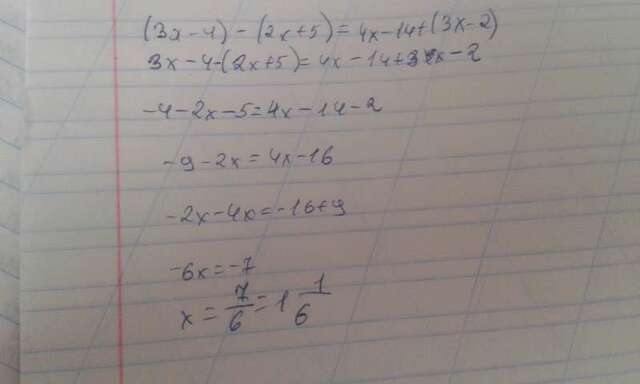 (3x-4)-(2x+5)=4x-14+(3x-2)
3x-4-(2x+5)=4x-14+3x-2
-4-2x-5=4x-14-2
-9-2x=4x-16
-2x-4x=-16+9
-6x=-7
x=7/6=1 1/6